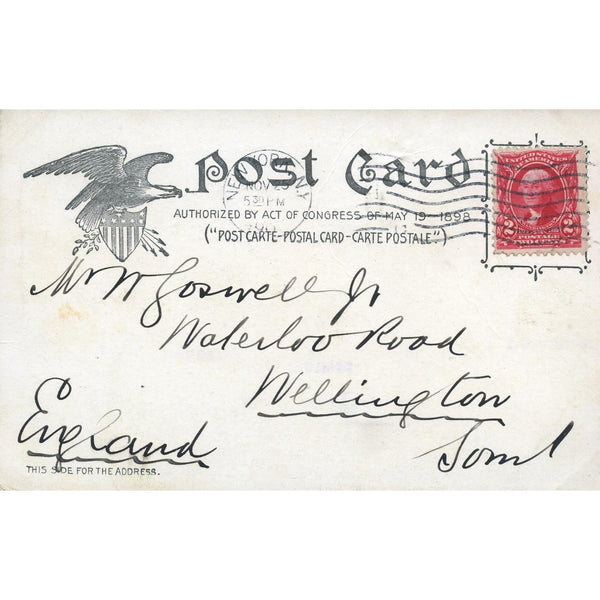 Post Card
NEW YORK, N.Y.
NOV 25
5 30 PM
AUTHORIZED BY ACT OF CONGRESS OF MAY 19-1898
("POST CARTE-POSTAL CARD-CARTE POSTALE")
UNITED STATES
OF AMERICA
2 2
POSTAGE
TWO CENTS
Mr W Goswell Jr
Waterloo Road
Wellington
England
Soml
THIS SIDE FOR THE ADDRESS.